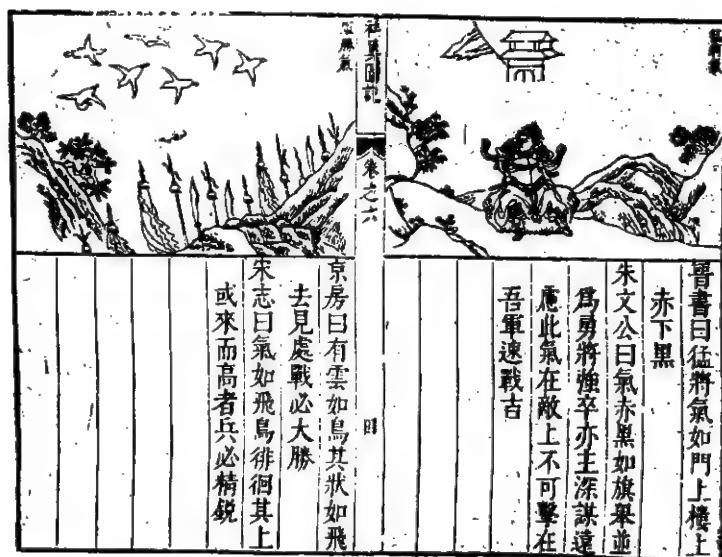 猛將氣
晉書曰猛將氣如門上樓上
赤下黑
朱文公曰氣赤黑如旗舉並
爲勇將強卒亦主深謀遠
慮此氣在敵上不可擊在
吾軍速戰吉
異圖
卷之六
四
勝氣
京房曰有雲如鳥其狀如飛
去見處戰必大勝
宋志曰氣如飛鳥徘徊其上
或來而高者兵必精銳